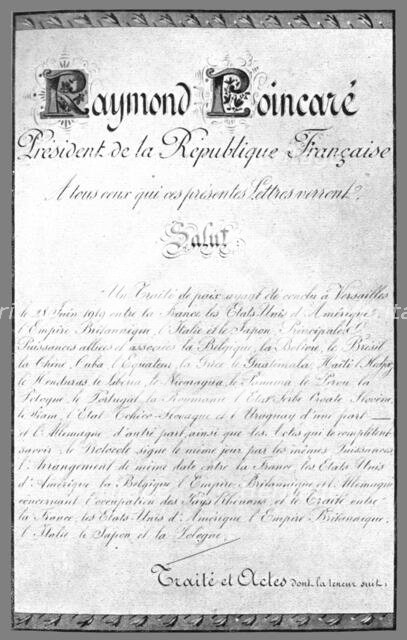 Raymond Poincaré
Président de la République Française
A tous ceux qui ces présentes Lettres verront,
Salut
Un Traité de paix ayant été conclu à Versailles
le 28 Juin 1919 entre la France, les Etats Unis d'Amérique,
l'Empire Britannique, l'Italie et le Japon, Principales
Puissances alliées et associées, la Belgique, la Bolivie, le Brésil
la Chine, Cuba, l'Equateur, la Grèce, le Guatemala, Haïti, l'Hedjaz,
le Honduras, le Libéria, le Nicaragua, le Panama, le Pérou, la
Pologne, le Portugal, la Roumanie, l'Etat Serbe Croate Slovène,
le Siam, l'Etat Tchéco-Slovaque et l'Uruguay d'une part
et l'Allemagne d'autre part, ainsi que les Actes qui le complètent
savoir, le Protocole signé le même jour par les mêmes Puissances,
l'Arrangement de même date entre la France, les Etats Unis
d'Amérique, la Belgique, l'Empire Britannique et l'Allemagne
concernant l'occupation des Pays Rhénans, et le Traité entre
la France, les Etats Unis d'Amérique, l'Empire Britannique,
l'Italie, le Japon et la Pologne.
Traité et Actes dont la teneur suit: